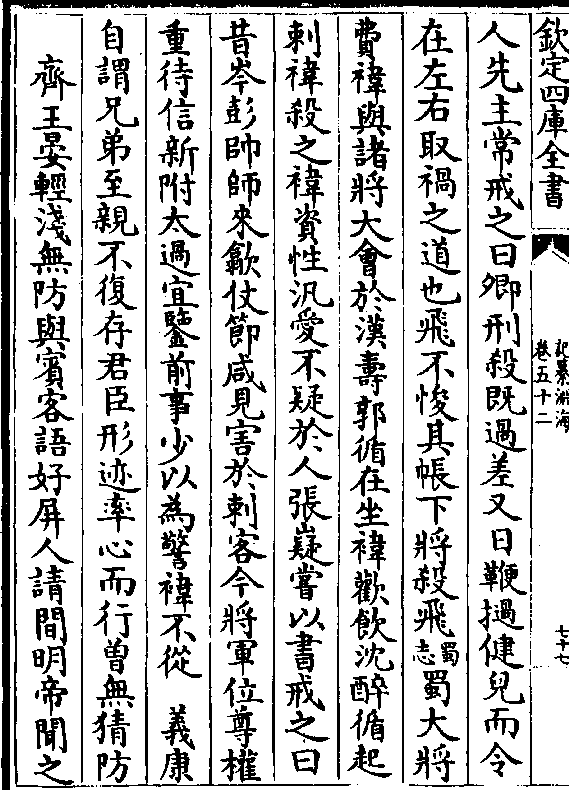 欽定四庫全書
記纂淵海
卷五十二
七十七
人先主常戒之曰卿刑殺既過差又日鞭撾健兒而令
在左右取禍之道也飛不悛其帳下將殺飛蜀志蜀大將
費褘與諸將大會於漢壽郭循在坐褘歡飲沈醉循起
刺褘殺之褘資性汎愛不疑於人張嶷嘗以書戒之曰
昔岑彭帥師來歙仗節咸見害於刺客今將軍位尊權
重待信新附太過宜鑒前事少以為警褘不從　義康
自謂兄弟至親不復存君臣形迹率心而行曾無猜防
齊王晏輕淺無防與賓客語好屏人請間明帝聞之